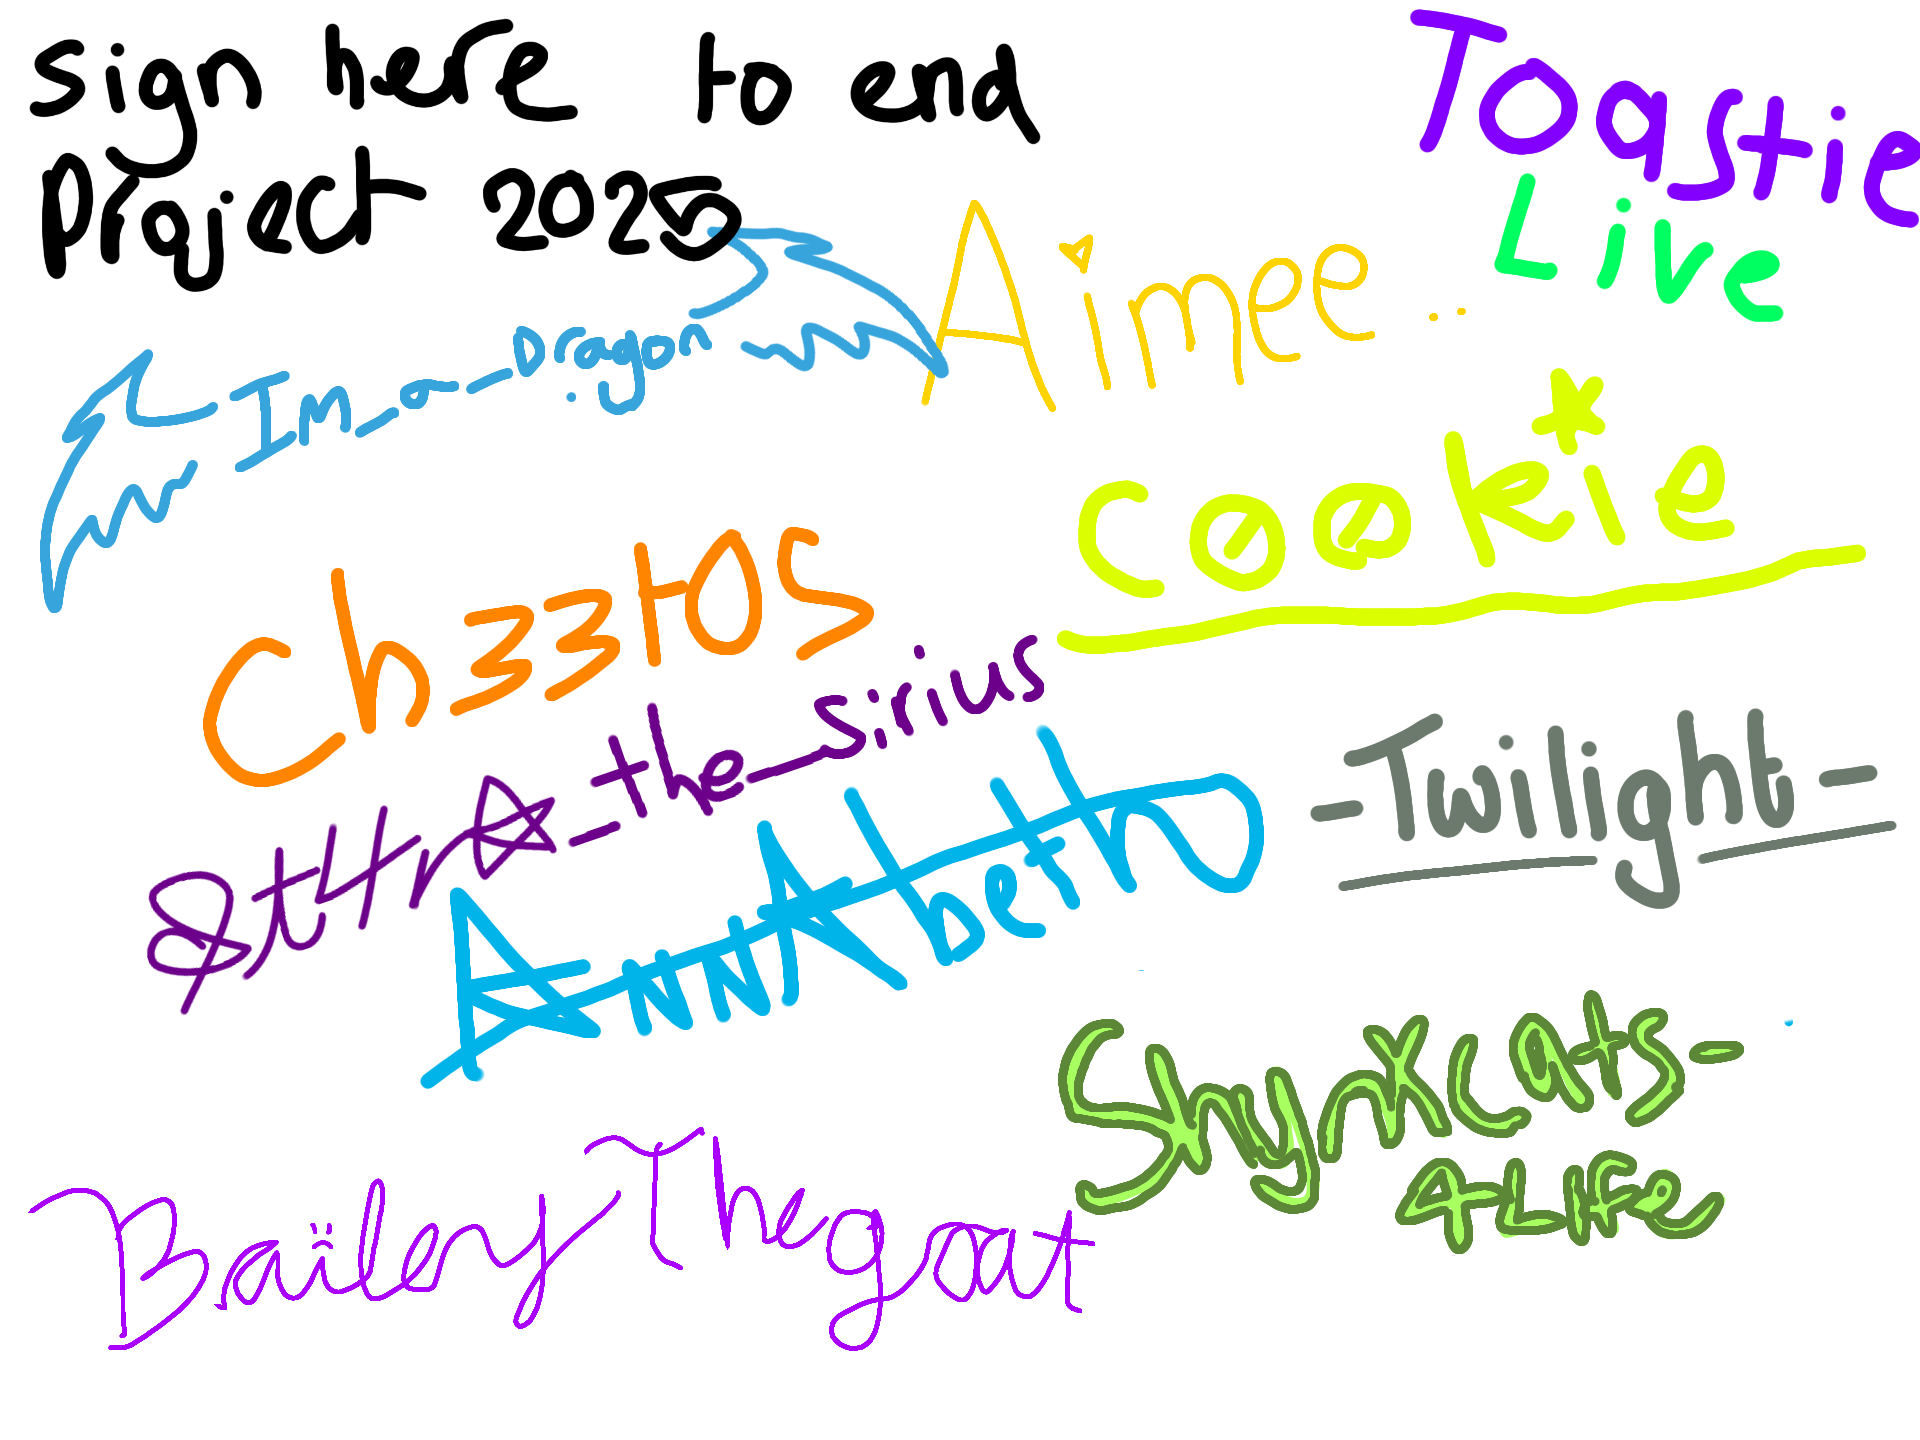 sign here to end
Project 2025
Toastie
Live
Aimee..
Im_a_Dragon
Cookie
Ch33tos
St4r☆_the_sirius
-Twilight-
AnnAbeth
Shynxcats-
4-Life
Bailey The goat